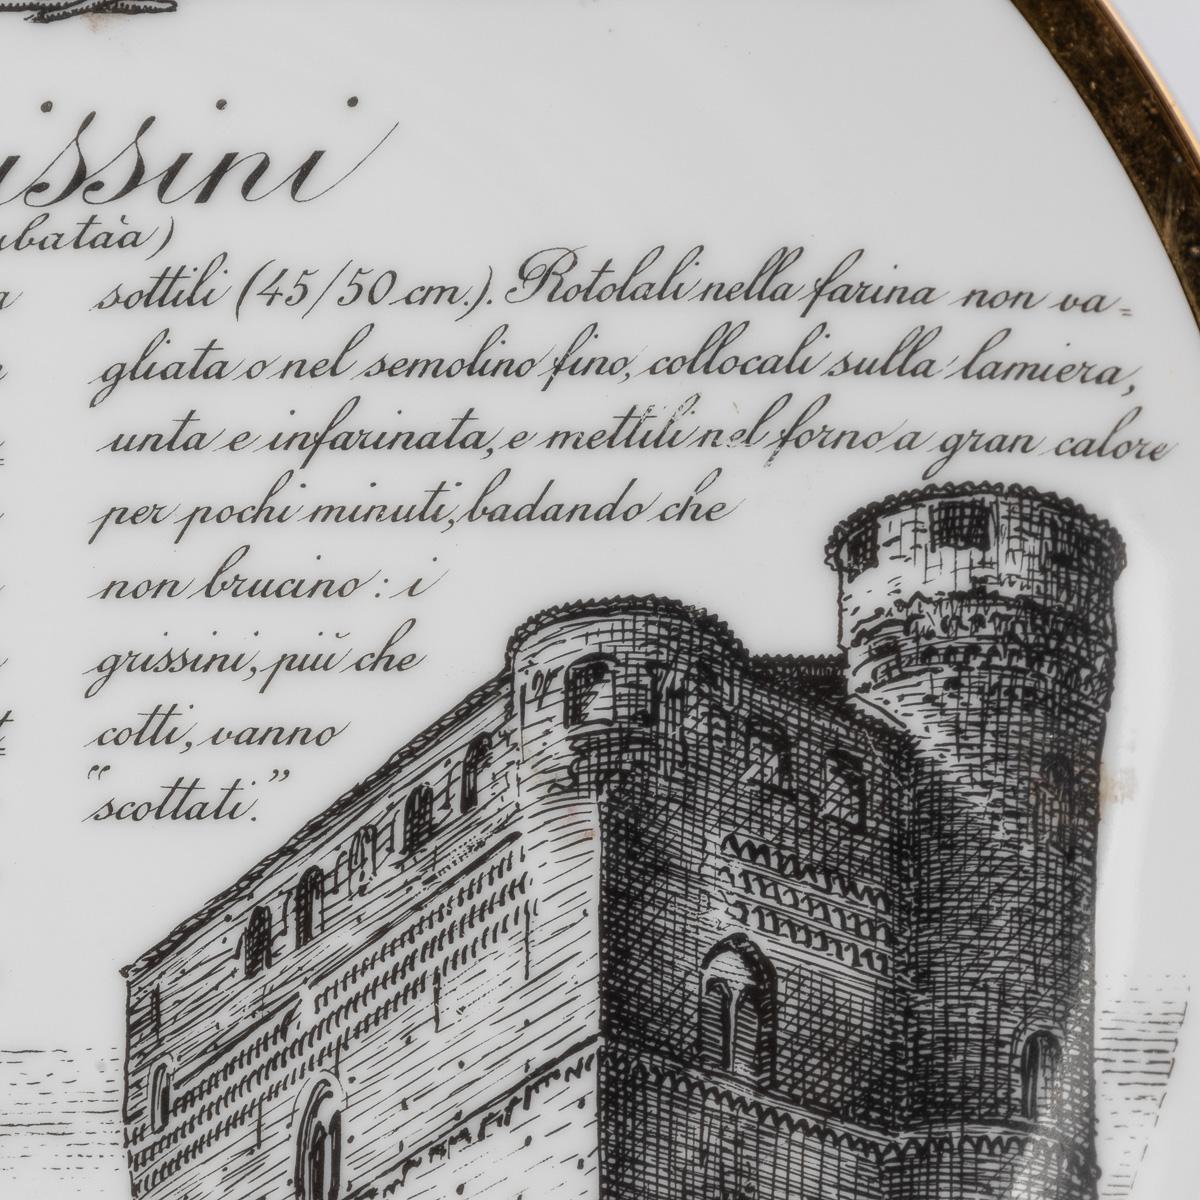 issini
ubatàa)
sottili (45/50 cm.). Rotolali nella farina non va=
gliata o nel semolino fino, collocali sulla lamiera,
unta e infarinata, e mettili nel forno a gran calore
per pochi minuti, badando che
non brucino: i
grissini, più che
cotti, vanno
“scottati.”